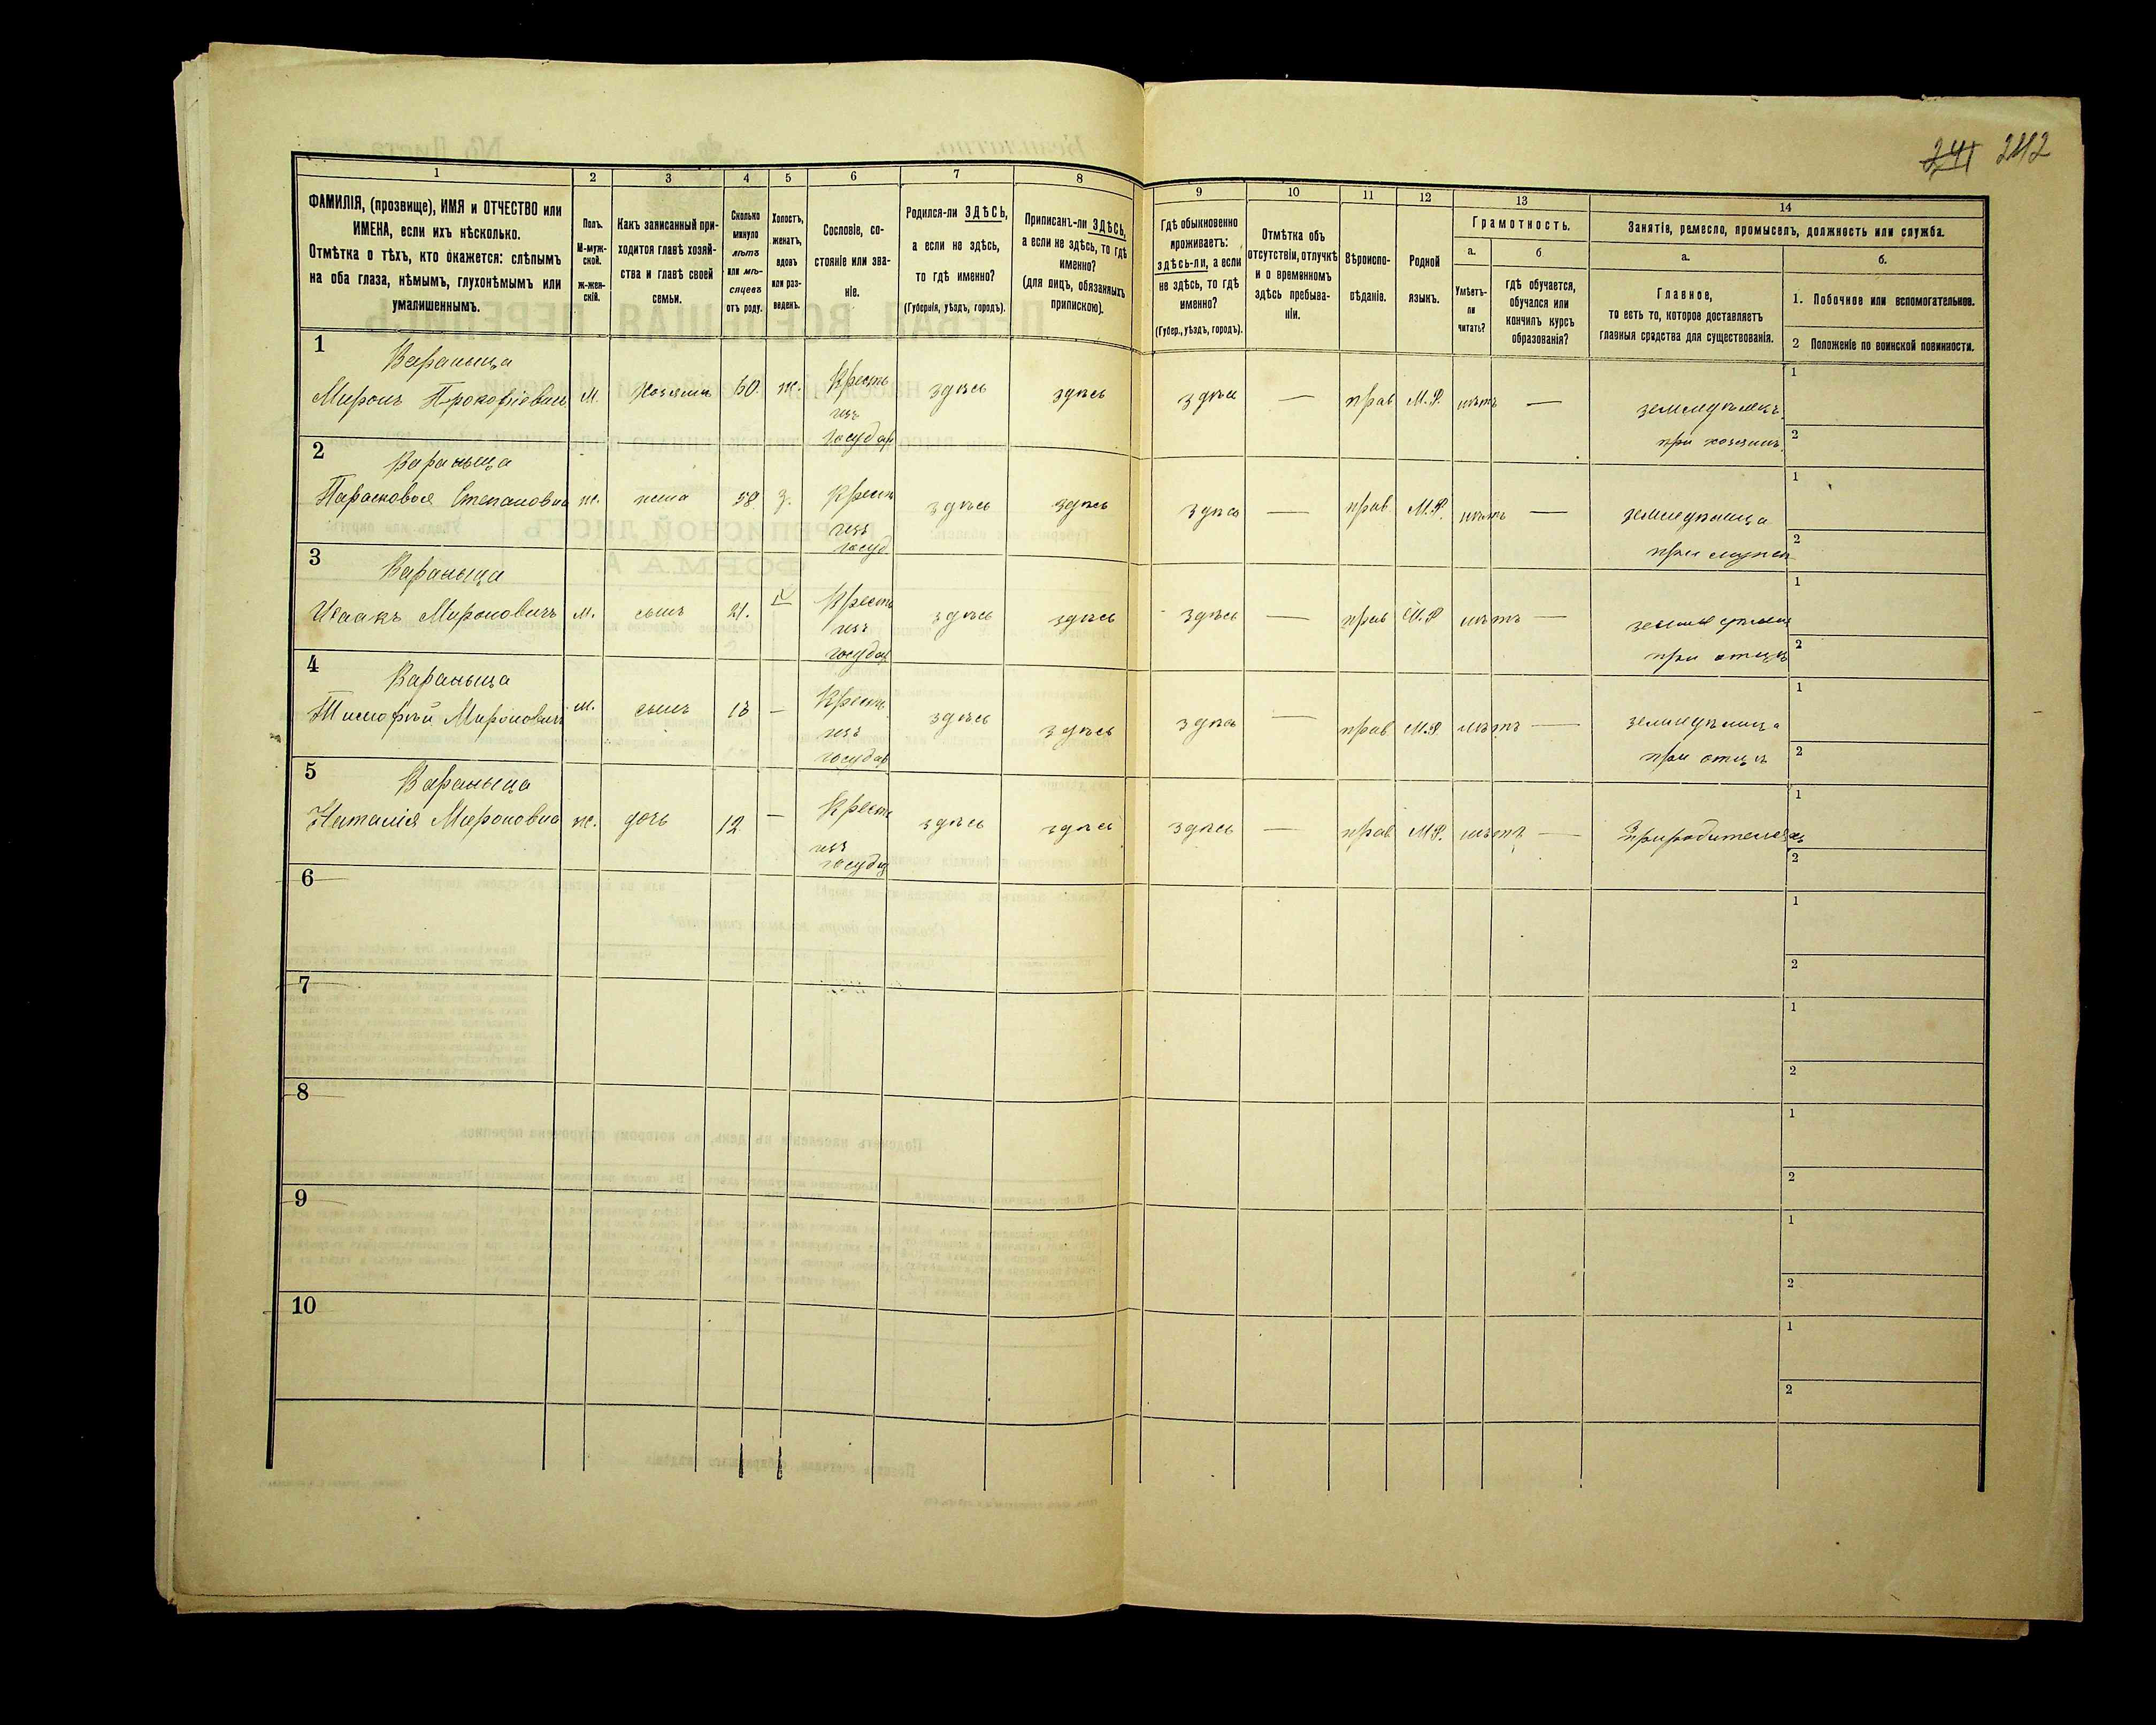 241 242
1 2 3 4 5 6 7 8 9 10 11 12 13 14
ФАМИЛІЯ, (прозвище), ИМЯ и ОТЧЕСТВО или
ИМЕНА, если ихъ нѣсколько.
Отмѣтка о тѣхъ, кто окажется: слѣпымъ
на оба глаза, нѣмымъ, глухонѣмымъ или
умалишеннымъ.
Полъ.
М-муж-
ской.
ж-жен-
скій.
Какъ записанный при-
ходится главѣ хозяй-
ства и главѣ своей
семьи.
Сколько
минуло
лѣтъ
или мѣ-
сяцевъ
отъ роду.
Холостъ,
женатъ,
вдовъ
или раз-
веденъ.
Сословіе, со-
стояніе или зва-
ніе.
Родился-ли ЗДѢСЬ,
а если не здѣсь,
то гдѣ именно?
(Губернія, уѣздъ, городъ).
Приписанъ-ли ЗДѢСЬ,
а если не здѣсь, то гдѣ
именно?
(для лицъ, обязанныхъ
припискою).
Гдѣ обыкновенно
проживаетъ:
здѣсь-ли, а если
не здѣсь, то гдѣ
именно?
(Губер., уѣздъ, городъ).
Отмѣтка объ
отсутствіи, отлучкѣ
и о временномъ
здѣсь пребыва-
ніи.
Вѣроиспо-
вѣданіе.
Родной
языкъ.
Грамотность.
а. б
Умѣетъ-
ли
читать?
гдѣ обучается,
обучался или
кончилъ курсъ
образованія?
Занятіе, ремесло, промыселъ, должность или служба.
а. б.
Главное,
то есть то, которое доставляетъ
главныя средства для существованія.
1. Побочное или вспомогательное.
2 Положеніе по воинской повинности.
1
Миронъ Прокофіевичъ м. Хозяинъ 60. ж. Крестъ здѣсь здѣсь здѣсь — прав М.Р. нѣтъ — земледѣлецъ 1
изъ
государ при хозяинѣ 2
2
Парасковья Степановна ж. жена 58. з. Крест здѣсь здѣсь здѣсь — прав М.Р. нѣтъ — 1
изъ
госуд при мужѣ 2
3
Исаакъ Мироновичъ м. сынъ 21. Крестъ здѣсь здѣсь здѣсь — прав М.Р нѣтъ — 1
изъ
государ при отцѣ 2
4
Тимофѣй Мироновичъ м. сынъ — Крест здѣсь здѣсь здѣсь — прав М.Р. нѣтъ — 1
изъ
государ при отцѣ 2
5
Наталія Мироновна ж. дочь 12 — Крест здѣсь здѣсь здѣсь — прав М.Р. нѣтъ — При родителяхъ 1
изъ
государ 2
6 1
2
7 1
2
8 1
2
9 1
2
10 1
2